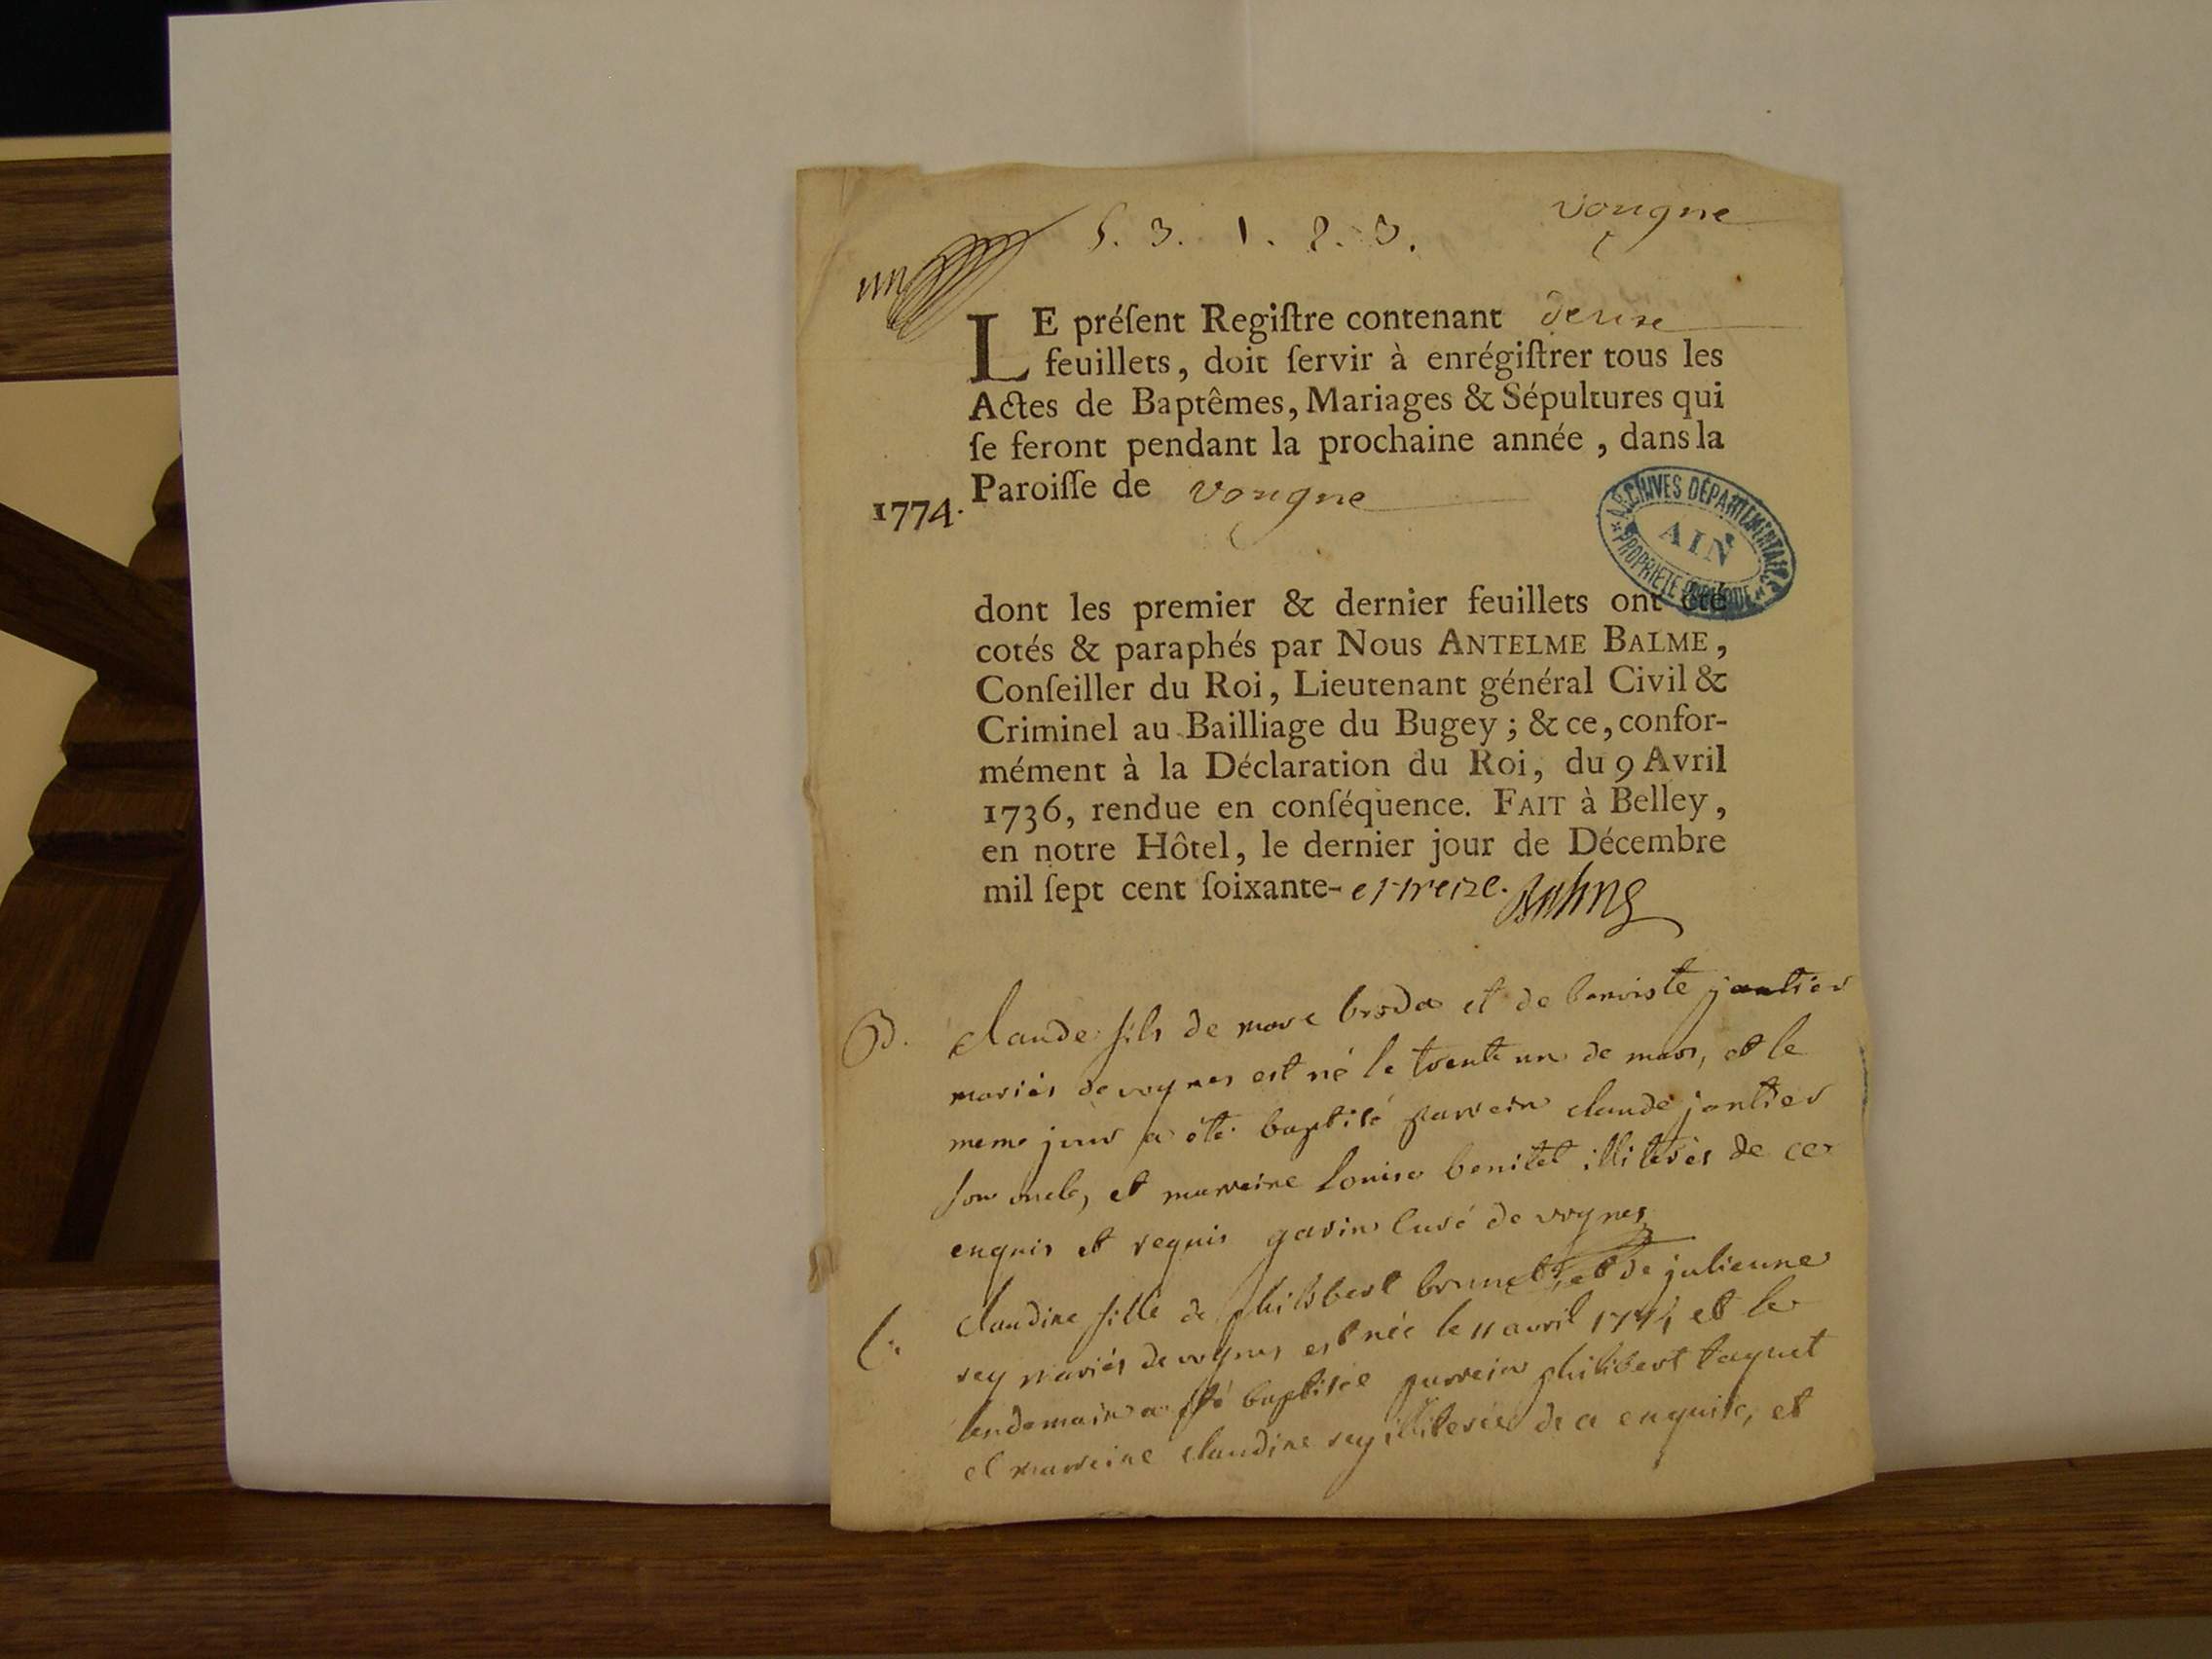 vougne
un
5. 3. 1. 2. 3.
LE préſent Regiſtre contenant deux
feuillets, doit ſervir à enrégiſtrer tous les
Actes de Baptêmes, Mariages & Sépultures qui
ſe feront pendant la prochaine année, dans la
1774. Paroiſſe de vougne
ARCHIVES DÉPARTEMENTALES
AIN
PROPRIÉTÉ PUBLIQUE
dont les premier & dernier feuillets ont été
cotés & paraphés par Nous ANTELME BALME,
Conſeiller du Roi, Lieutenant général Civil &
Criminel au Bailliage du Bugey; & ce, confor-
mément à la Déclaration du Roi, du 9 Avril
1736, rendue en conſéquence. FAIT à Belley,
en notre Hôtel, le dernier jour de Décembre
mil ſept cent ſoixante- et treize. Balme
B. claude fils de marc et de benoiste jantier
mariés de vognes est né le trente un de mars, et le
meme jour a été baptisé parrein claude jantier
son oncle, et marreine Louise benitet illiterés de ce
enquis et requis gavin Curé de vognes
claudine fille de philibert brunet et de julienne
rey mariés de vognes est née le 11 avril 1774 et le
lendemain a été baptisée parrein philibert taquet
et marreine claudine rey illiterée de ce enquise, et